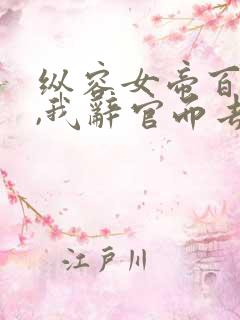 纵容女帝百
,我辞官而去
江户川